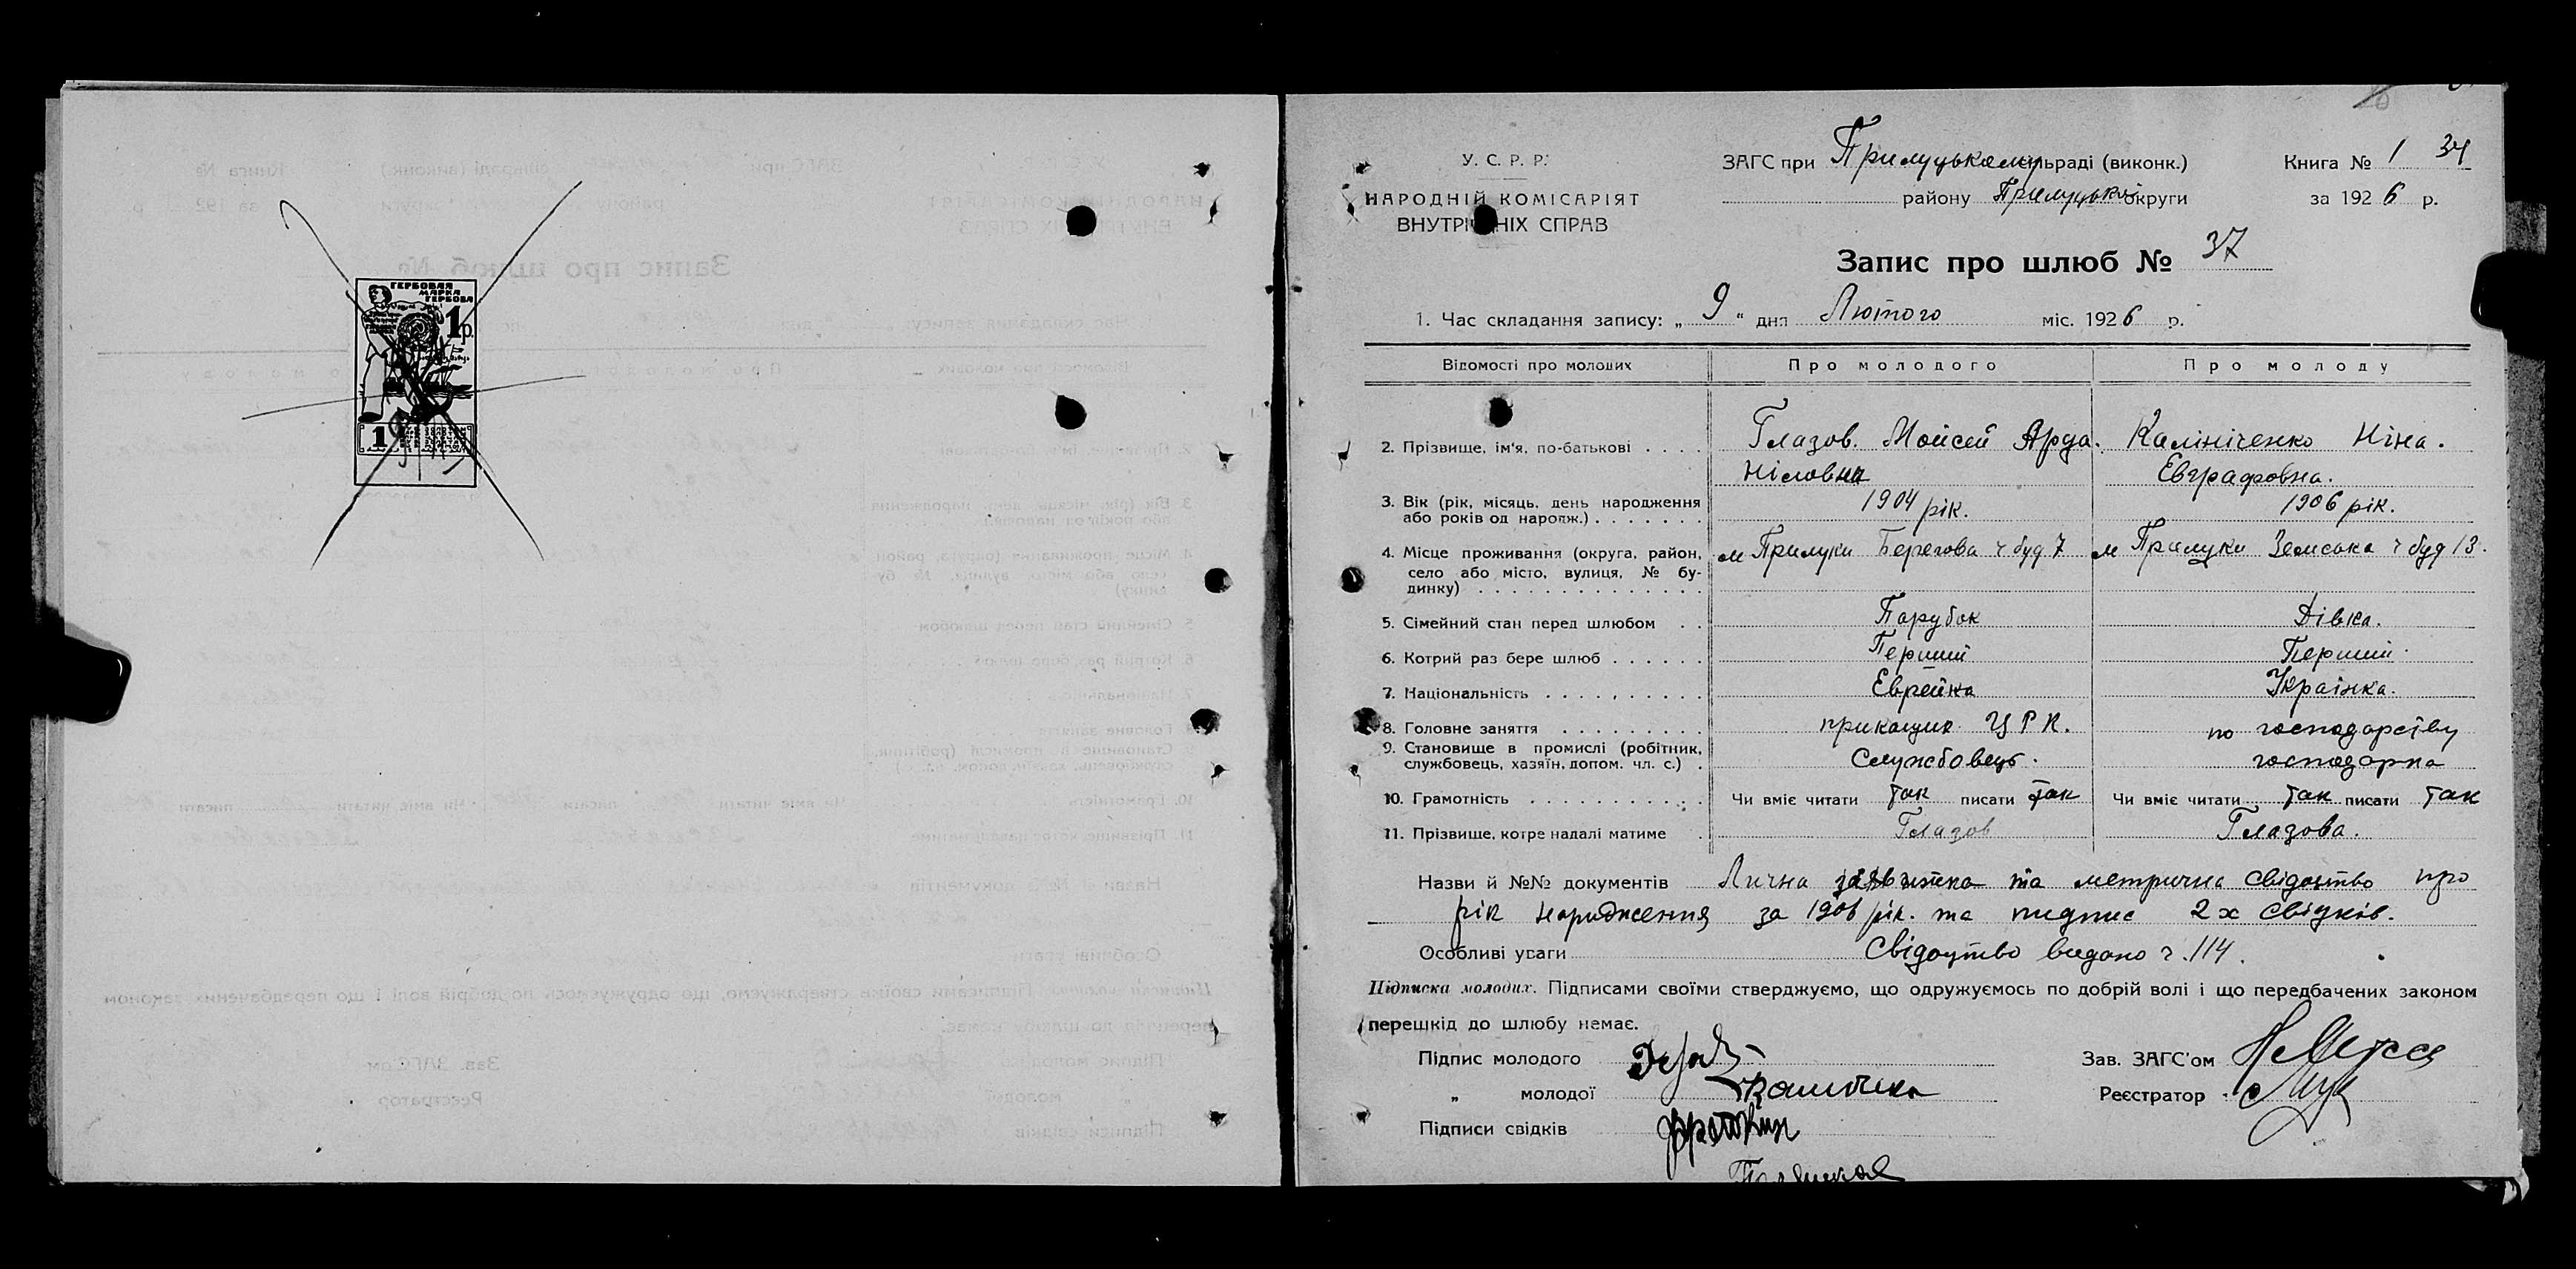 ГЕРБОВАЯ
МАРКА
ГЕРБОВА
1 р.
1
У. С. Р. Р.
НАРОДНІЙ КОМІСАРІЯТ
ВНУТРІШНІХ СПРАВ
ЗАГС при Прилуцькому сільраді (виконк.)
району Прилуцької округи
Книга № 1 34
за 1926 р.
Запис про шлюб № 37
1. Час складання запису: „ 9 “ дня Лютого міс. 1926 р.
Відомості про молодих Про молодого Про молоду
2. Прізвище, ім'я, по-батькові . . . . Глазов. Мойсей Арда. Калініченко Ніна.
Евграфовна.
3. Вік (рік, місяць, день народження 1904 рік. 1906 рік.
або років од народж.) . . . . . . .
4. Місце проживання (округа, район, м Прилуки Берегова ч буд 7 м Прилуки Земська ч буд 13.
село або місто, вулиця, № бу-
динку) . . . . . . . . . . . . . .
5. Сімейний стан перед шлюбом . . Парубок Дівка.
6. Котрий раз бере шлюб . . . . . . Перший Перший
7. Національність . . . . . . . . . . Еврейка Українка.
8. Головне заняття . . . . . . . . . прикащик ЦРК. по господарству
9. Становище в промислі (робітник, Службовець. господарка
службовець, хазяїн, допом. чл. с.) .
10. Грамотність . . . . . . . . . . . Чи вміє читати так писати так Чи вміє читати так писати так
11. Прізвище, котре надалі матиме . Глазов Глазова.
Назви й №№ документів Лична та метрична свідоцтво про
рік народження за 1906 рік. та підпис 2х свідків.
Особливі уваги Свідоцтво видано ч. 114.
Підписка молодих. Підписами своїми стверджуємо, що одружуємось по добрій волі і що передбачених законом
перешкід до шлюбу немає.
Підпис молодого
Зав. ЗАГС'ом
„ молодої
Реєстратор
Підписи свідків